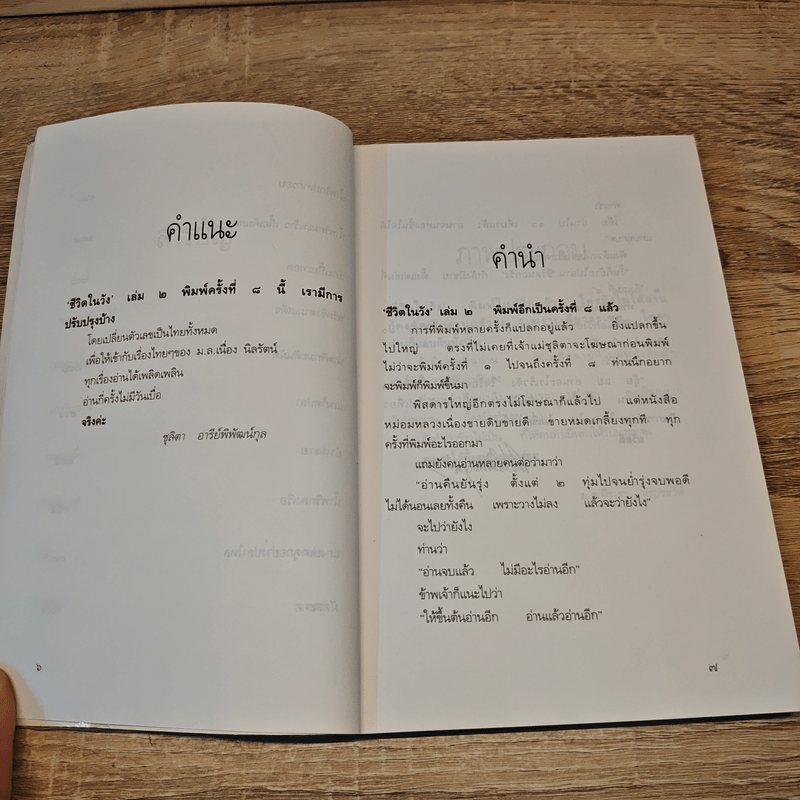 คำแนะ
'ชีวิตในวัง' เล่ม ๒ พิมพ์ครั้งที่ ๘ นี้ เรามีการ
ปรับปรุงบ้าง
โดยเปลี่ยนตัวเลขเป็นไทยทั้งหมด
เพื่อให้เข้ากับเรื่องไทยๆของ ม.ล.เนื่อง นิลรัตน์
ทุกเรื่องอ่านได้เพลิดเพลิน
อ่านกี่ครั้งไม่มีวันเบื่อ
จริงค่ะ
ชูลิตา อารีย์พิพัฒน์กุล
๖
คำนำ
'ชีวิตในวัง' เล่ม ๒ พิมพ์อีกเป็นครั้งที่ ๘ แล้ว
การที่พิมพ์หลายครั้งก็แปลกอยู่แล้ว ยิ่งแปลกขึ้น
ไปใหญ่ ตรงที่ไม่เคยที่เจ้าแม่ชุลิตาจะโฆษณาก่อนพิมพ์
ไม่ว่าจะพิมพ์ครั้งที่ ๑ ไปจนถึงครั้งที่ ๘ ท่านนึกอยาก
จะพิมพ์ก็พิมพ์ขึ้นมา
พิสดารใหญ่อีกตรงไม่โฆษณาก็แล้วไป แต่หนังสือ
หม่อมหลวงเนื่องขายดิบขายดี ขายหมดเกลี้ยงทุกที ทุก
ครั้งที่พิมพ์อะไรออกมา
แถมยังคนอ่านหลายคนต่อว่ามาว่า
"อ่านคืนยันรุ่ง ตั้งแต่ ๒ ทุ่มไปจนย่ำรุ่งจบพอดี
ไม่ได้นอนเลยทั้งคืน เพราะวางไม่ลง แล้วจะว่ายังไง"
จะไปว่ายังไง
ท่านว่า
"อ่านจบแล้ว ไม่มีอะไรอ่านอีก"
ข้าพเจ้าก็แนะไปว่า
"ให้ขึ้นต้นอ่านอีก อ่านแล้วอ่านอีก"
๗